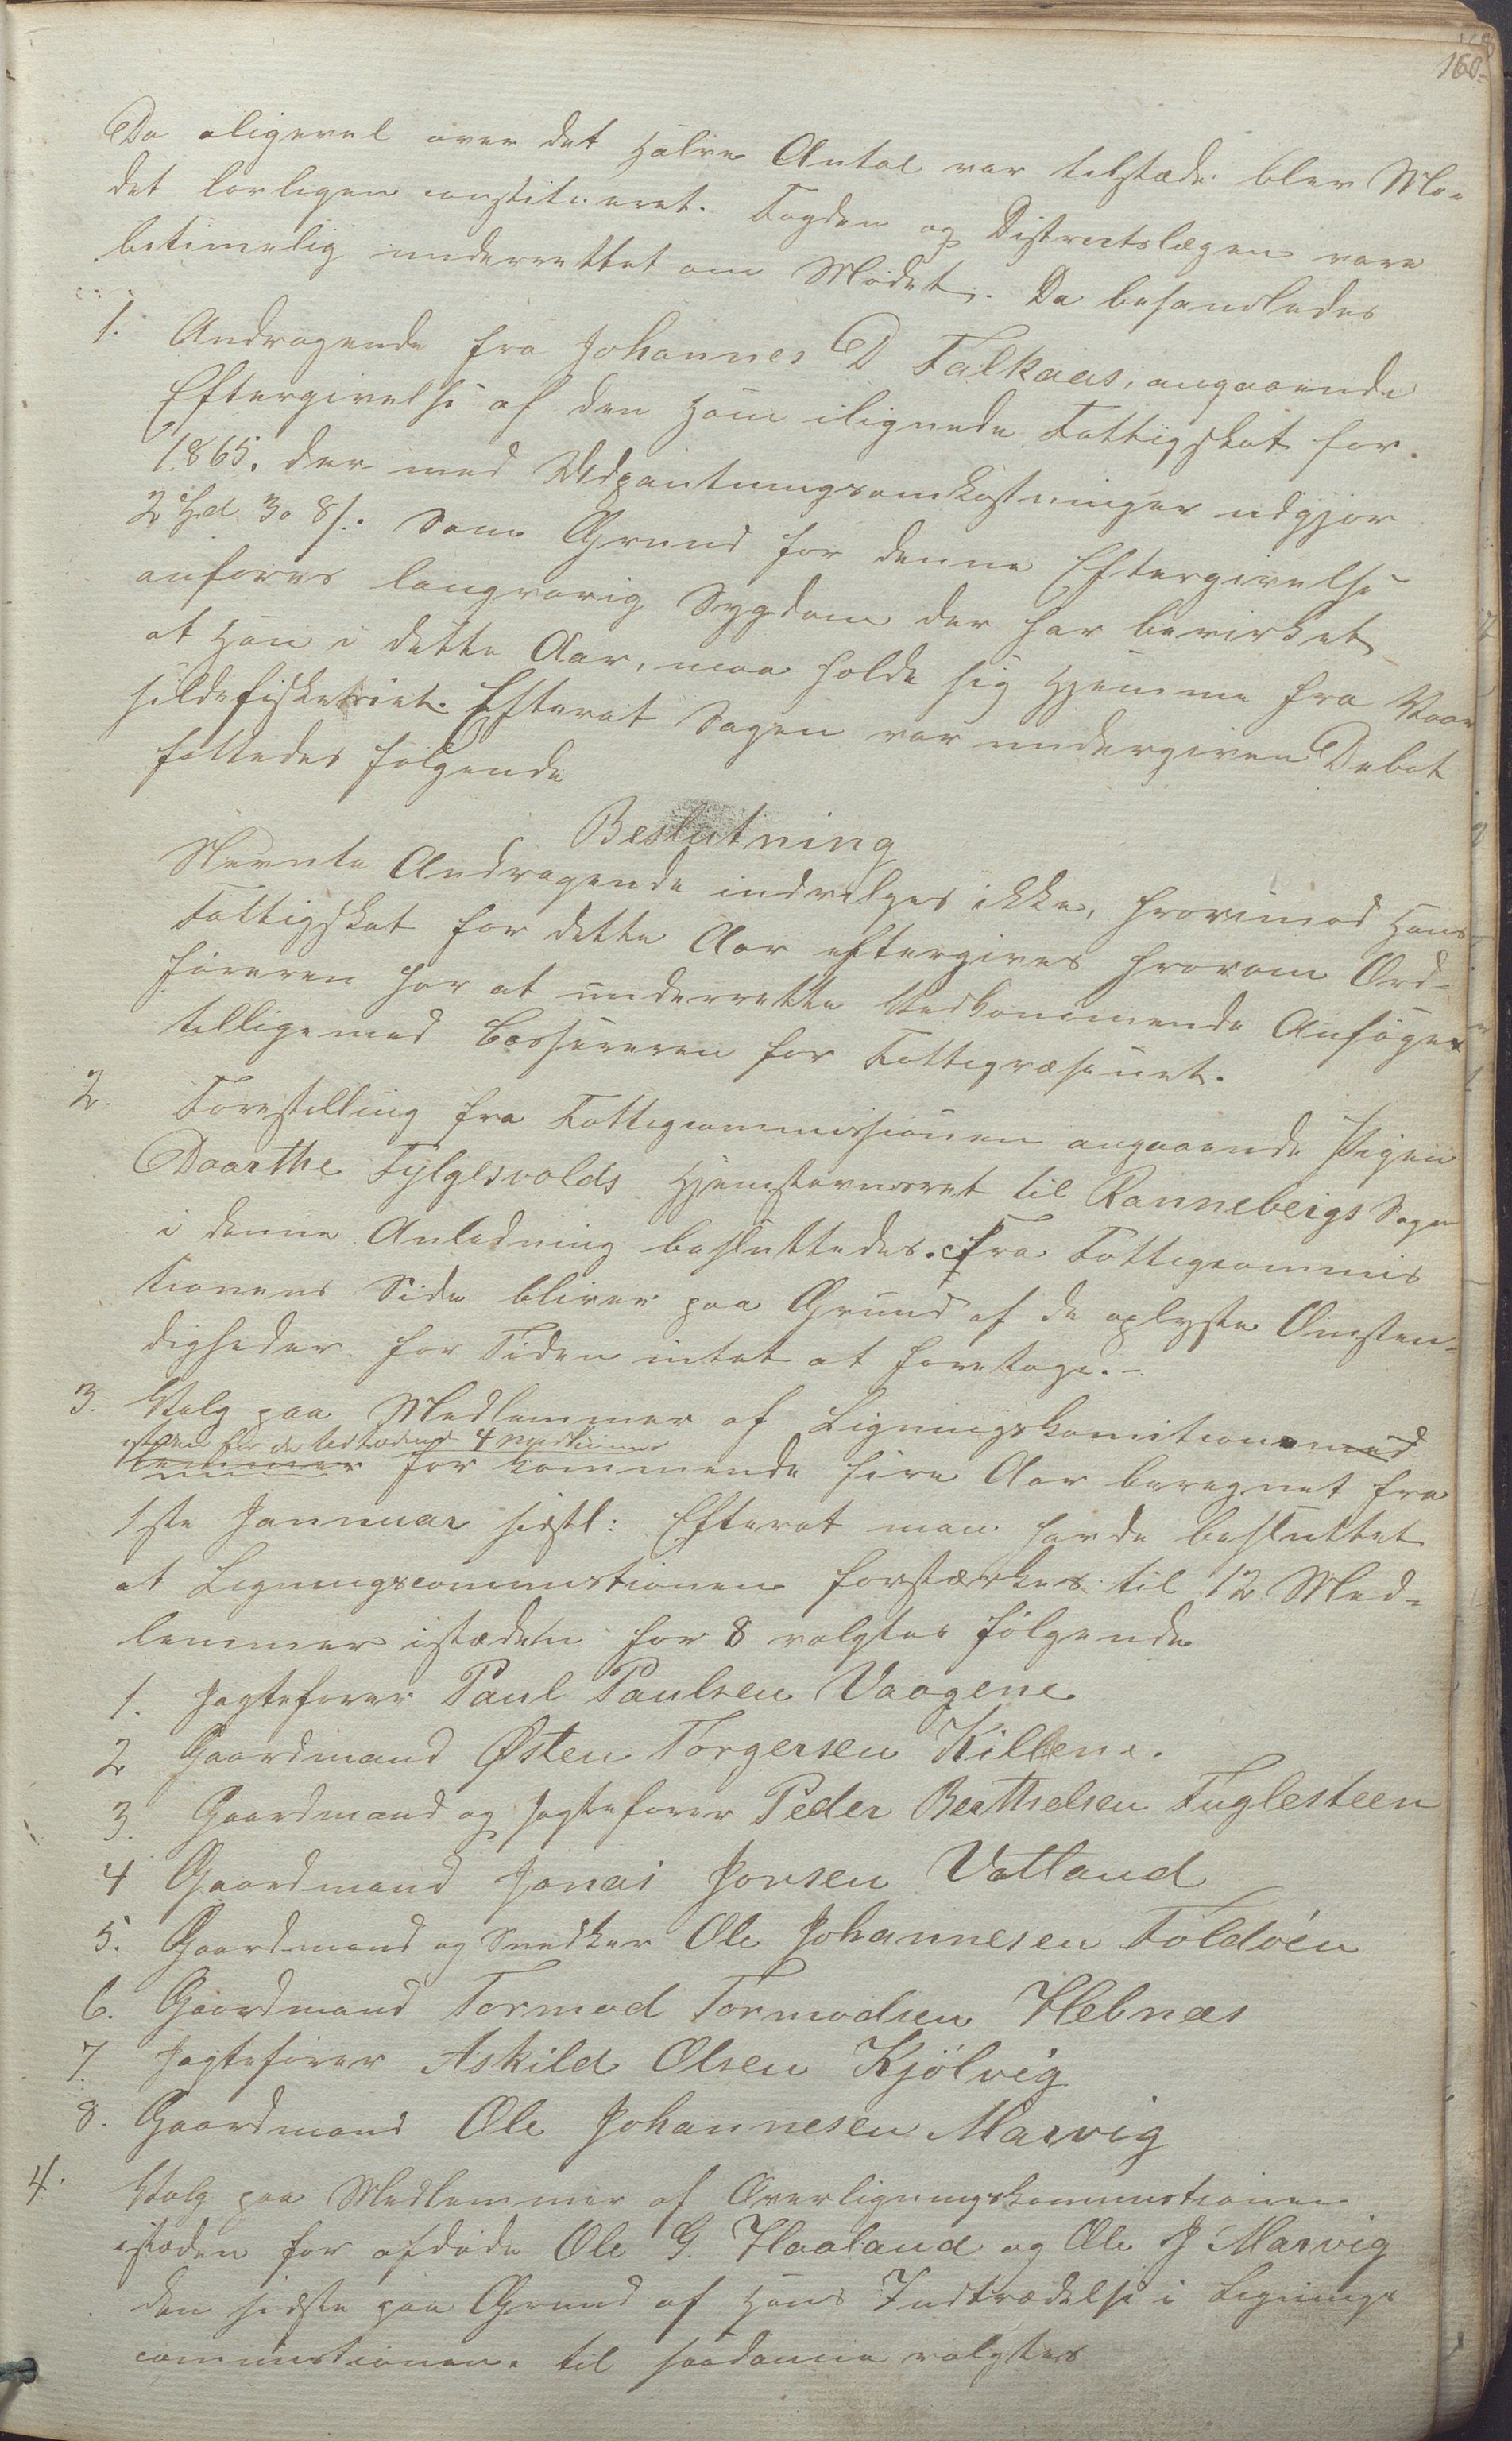 160
Da aligevel over det Halve Antal var tilstæde blev Mø-
det lovligen constitueret. Fogden og Districtslægen vare
betimelig underrettet om Mødet. Da behandledes
1. Andragende fra Johannes D Falkaas, angaaende
Eftergivelse af den Ham ilignede Fattigskat for
1865. der med Udpantningsomkostninger udgjør
2 Spd 3 o 8 s. Som Grund for denne Eftergivelse
anføres langvarig Sygdom der har bevirket
at Han i dette Aar, maa holde sig Hjemme fra Vaar
sildefiskeriet. Efterat Sagen var undergiven Debat
fattedes følgende
Beslutning
Nævnte Andragende indvilges ikke, hvorimod Hans
Fattigskat for dette Aar eftergives hvorom Ord-
føreren har at underrette Vedkommende Ansøger
tilligemed Cassereren for Fattigvæsenet.
2. Forestilling fra Fattigcommissionen angaaende Pigen
Daarthe Fylgesvolds Hjemstavnsret til Rannebergs Sogn
i denne Anledning besluttedes. Fra Fattigcommis
sionens Side bliver paa Grund af de oplyste Omsten-
digheder for Tiden intet at foretage. -
3. Valg paa Medlemmer af Ligningskomitionen med
istæden for de udtrædende 4 Medlemmer
lemmer for kommende fire Aar beregnet fra
1ste Jannuar sidstl: Efterat man havde besluttet
at Ligningscommistionen forstærkes til 12 Med-
lemmer istæden for 8 valgtes følgende
1. Jagtefører Paul Paulsen Vaagene
2 Gaardmand Østen Torgersen Killene.
3. Gaardmand og Jagtefører Peder Berthelsen Fuglesteen
4 Gaardmand Jonas Jonsen Vatland
5. Gaardmand og Snedker Ole Johannesen Foldøen
6. Gaardmand Tormod Tormodsen Hebnæs
7. Jagtefører Askild Olsen Kjølvig
8. Gaardmand Ole Johannesen Marvig
4. Valg paa Medlemmer af Overligningskommistionen
istæden for afdøde Ole G. Haaland og Ole J Marvig
den sidste paa Grund af Hans Indtrædelse i Lignings
commistionen. til saadanne valgtes